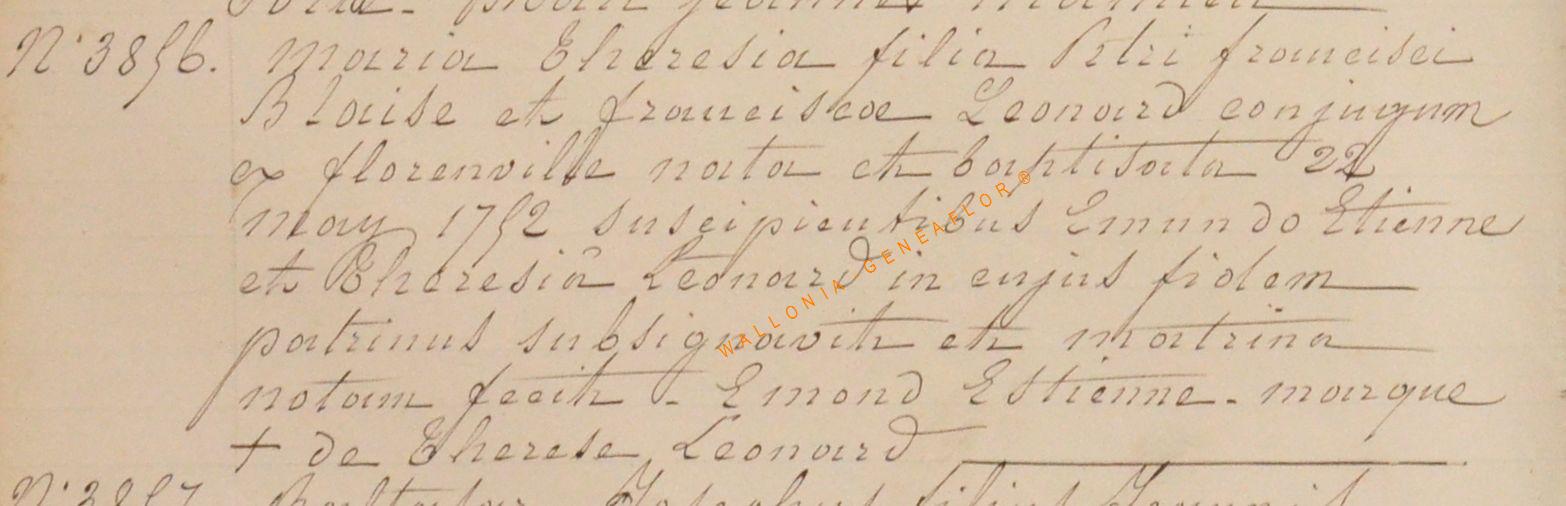 N° 3856. Maria Theresia filia Petri francisci
Blaise et franciscae Leonard conjugum
ex florenville nata et baptisata 22
may 1752 suscipientibus Emundo Etienne
et Theresiâ Leonard in cujus fidem
patrinus subsignavit et matrina
notam fecit - Emond Estienne - marque
+ de Therese Leonard
N° 3857 Josephus filius
WALLONIA GENEAFLOR®